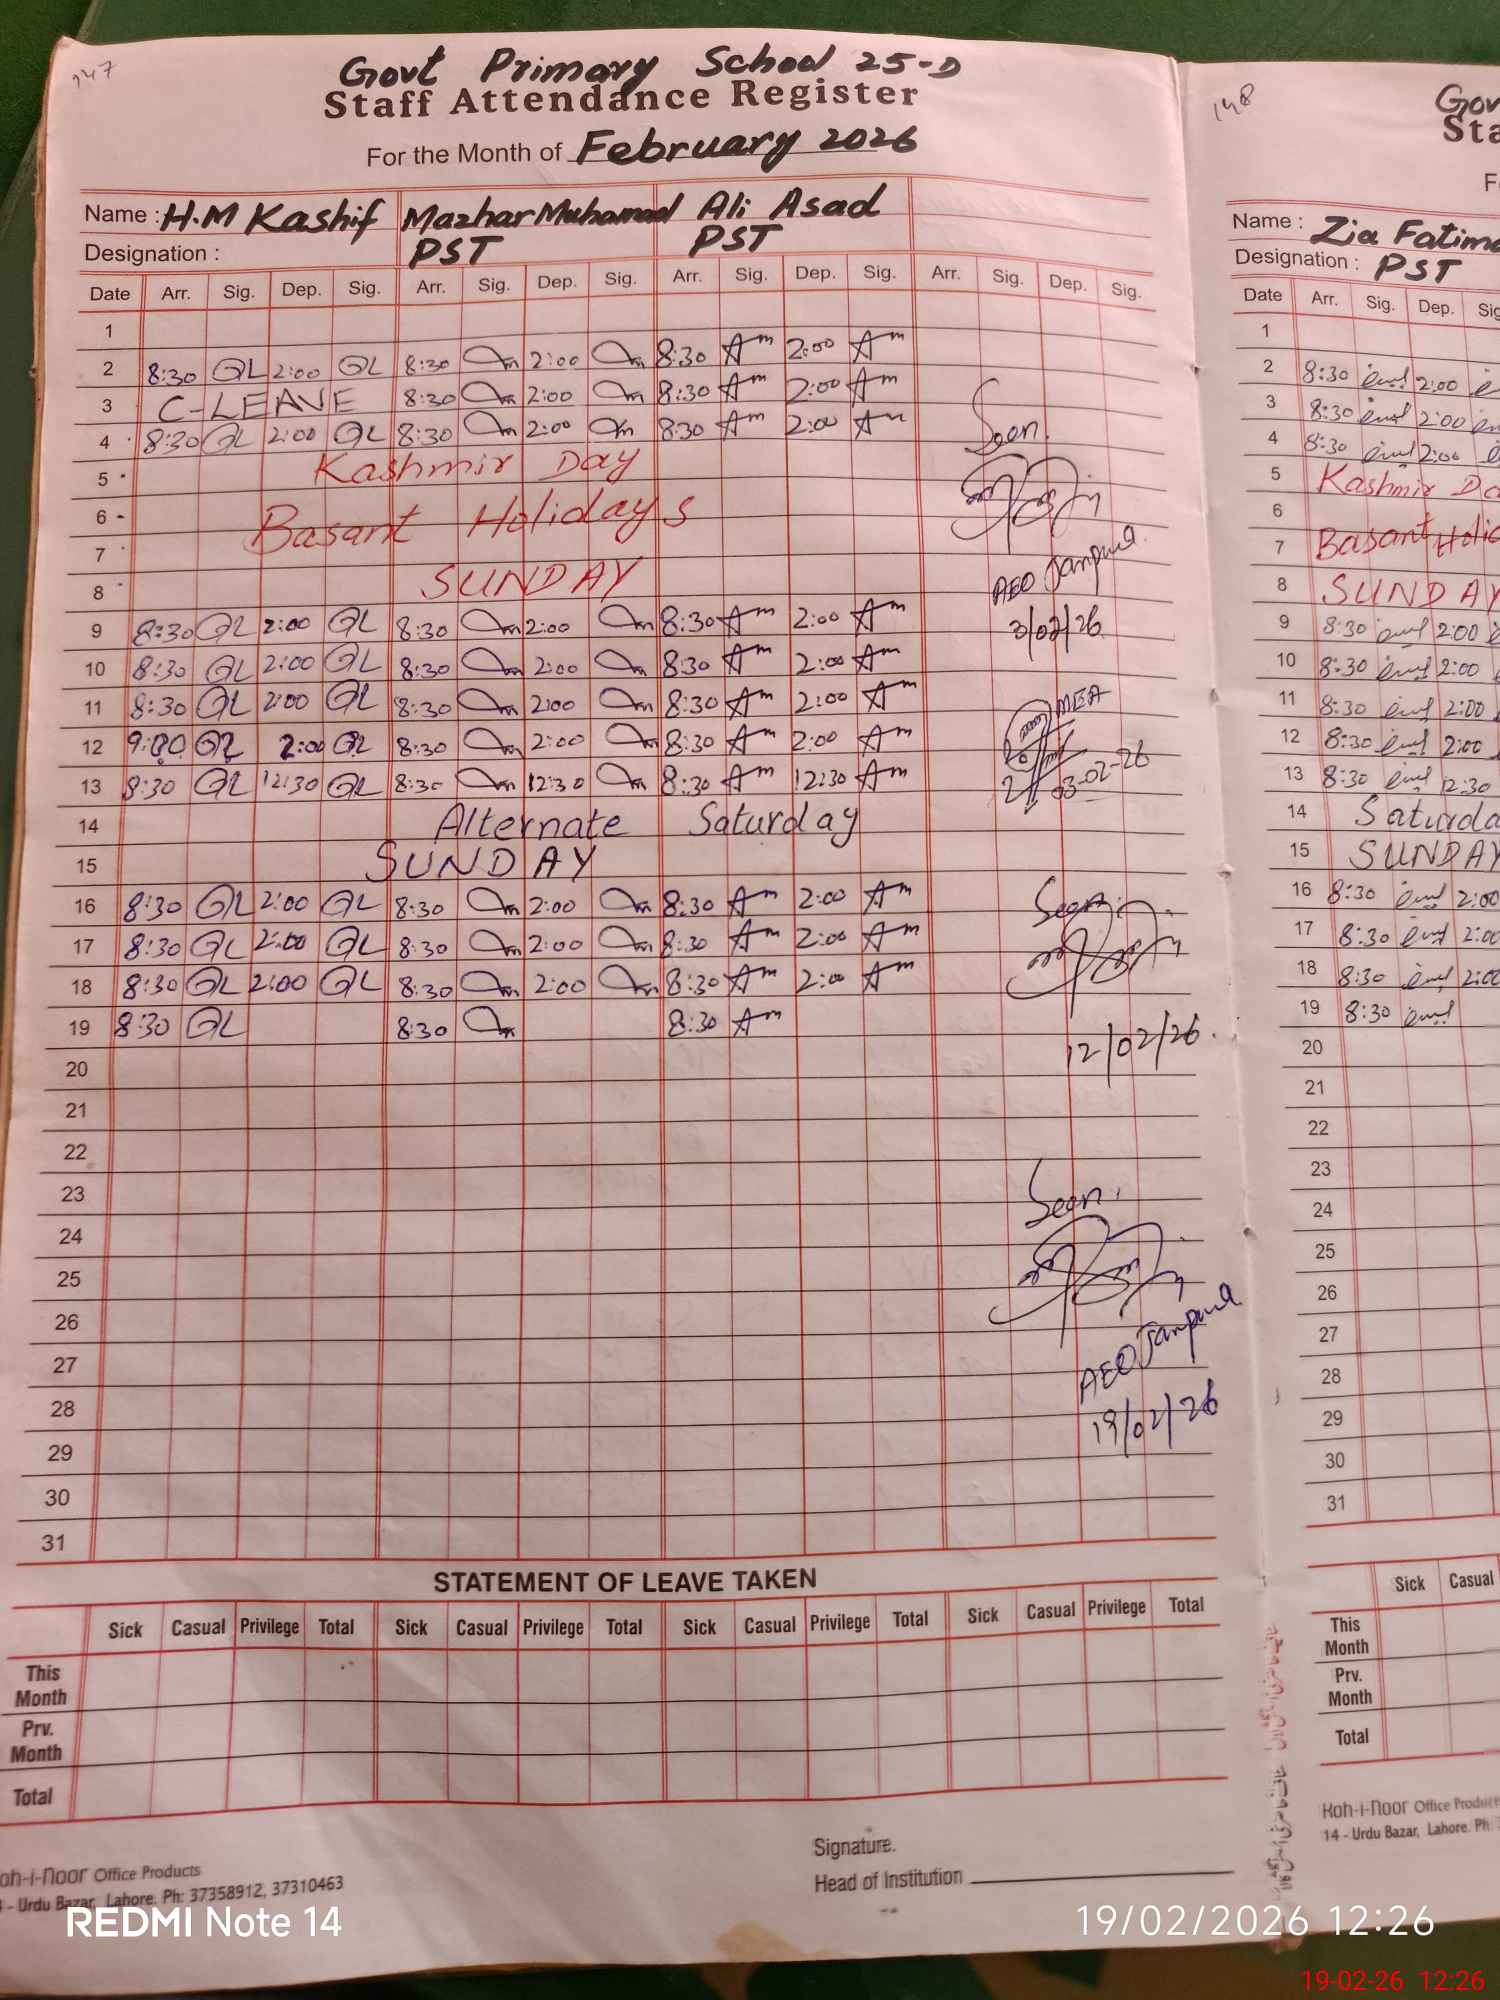 147
Govt Primary School 25-D
Staff Attendance Register
For the Month of February 2026
Name : H.M Kashif Mazhar Muhamad Ali Asad
Designation : PST PST
Date Arr. Sig. Dep. Sig. Arr. Sig. Dep. Sig. Arr. Sig. Dep. Sig. Arr. Sig. Dep. Sig.
1
2 8:30 2:00 8:30 2:00 8:30 Am 2:00 Am
3 C-LEAVE 8:30 2:00 8:30 Am 2:00 Am
4 8:30 2:00 8:30 2:00 8:30 Am 2:00 Am
Seen.
5 Kashmir Day
6 Basant Holidays
7
8 SUNDAY
AEO
9 8:30 2:00 8:30 2:00 8:30 Am 2:00 Am
3/02/26
10 8:30 2:00 8:30 2:00 8:30 Am 2:00 Am
11 8:30 2:00 8:30 2:00 8:30 Am 2:00 Am
MEA
12 9:00 2:00 8:30 2:00 8:30 Am 2:00 Am
03-02-26
13 8:30 12:30 8:30 12:30 8:30 Am 12:30 Am
14 Alternate Saturday
15 SUNDAY
16 8:30 2:00 8:30 2:00 8:30 Am 2:00 Am
Seen.
17 8:30 2:00 8:30 2:00 8:30 Am 2:00 Am
18 8:30 2:00 8:30 2:00 8:30 Am 2:00 Am
19 8:30 8:30 8:30 Am
12/02/26.
20
21
22
23
Seen.
24
25
26
27
AEO
28
19/02/26
29
30
31
STATEMENT OF LEAVE TAKEN
Sick Casual Privilege Total Sick Casual Privilege Total Sick Casual Privilege Total Sick Casual Privilege Total
This Month
Prv. Month
Total
Signature.
Head of Institution
oh-i-noor Office Products
- Urdu Bazar, Lahore. Ph: 37358912, 37310463
148
Gov
Sta
F
Name : Zia Fatima
Designation : PST
Date Arr. Sig. Dep. Sig
1
2 8:30 2:00
3 8:30 2:00
4 8:30 2:00
5 Kashmir Da
6
7 Basant Holid
8 SUNDAY
9 8:30 2:00
10 8:30 2:00
11 8:30 2:00
12 8:30 2:00
13 8:30 12:30
14 Saturda
15 SUNDAY
16 8:30 2:00
17 8:30 2:00
18 8:30 2:00
19 8:30
20
21
22
23
24
25
26
27
28
29
30
31
Sick Casual
This Month
Prv. Month
Total
Koh-i-noor Office Products
14 - Urdu Bazar, Lahore. Ph.
REDMI Note 14
19/02/2026 12:26
19-02-26 12:26